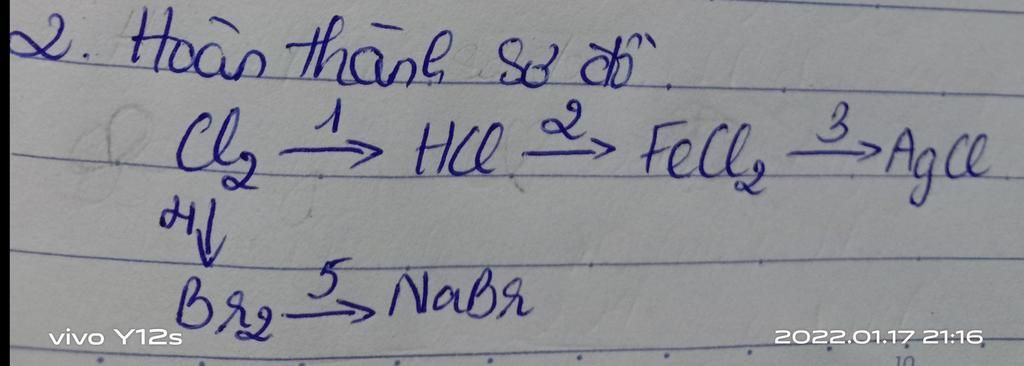 2. Hoàn thành sơ đồ.
Cl₂ →¹ HCl →² FeCl₂ →³ AgCl
4↓
Br₂ →⁵ NaBr
vivo Y12s
2022.01.17 21:16